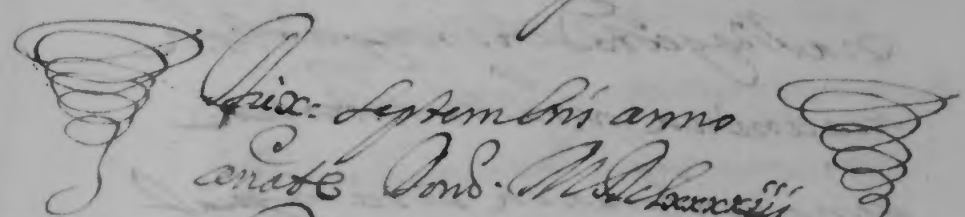 Die ix: Septembris anno
anate Dond. MDclxxxxiij